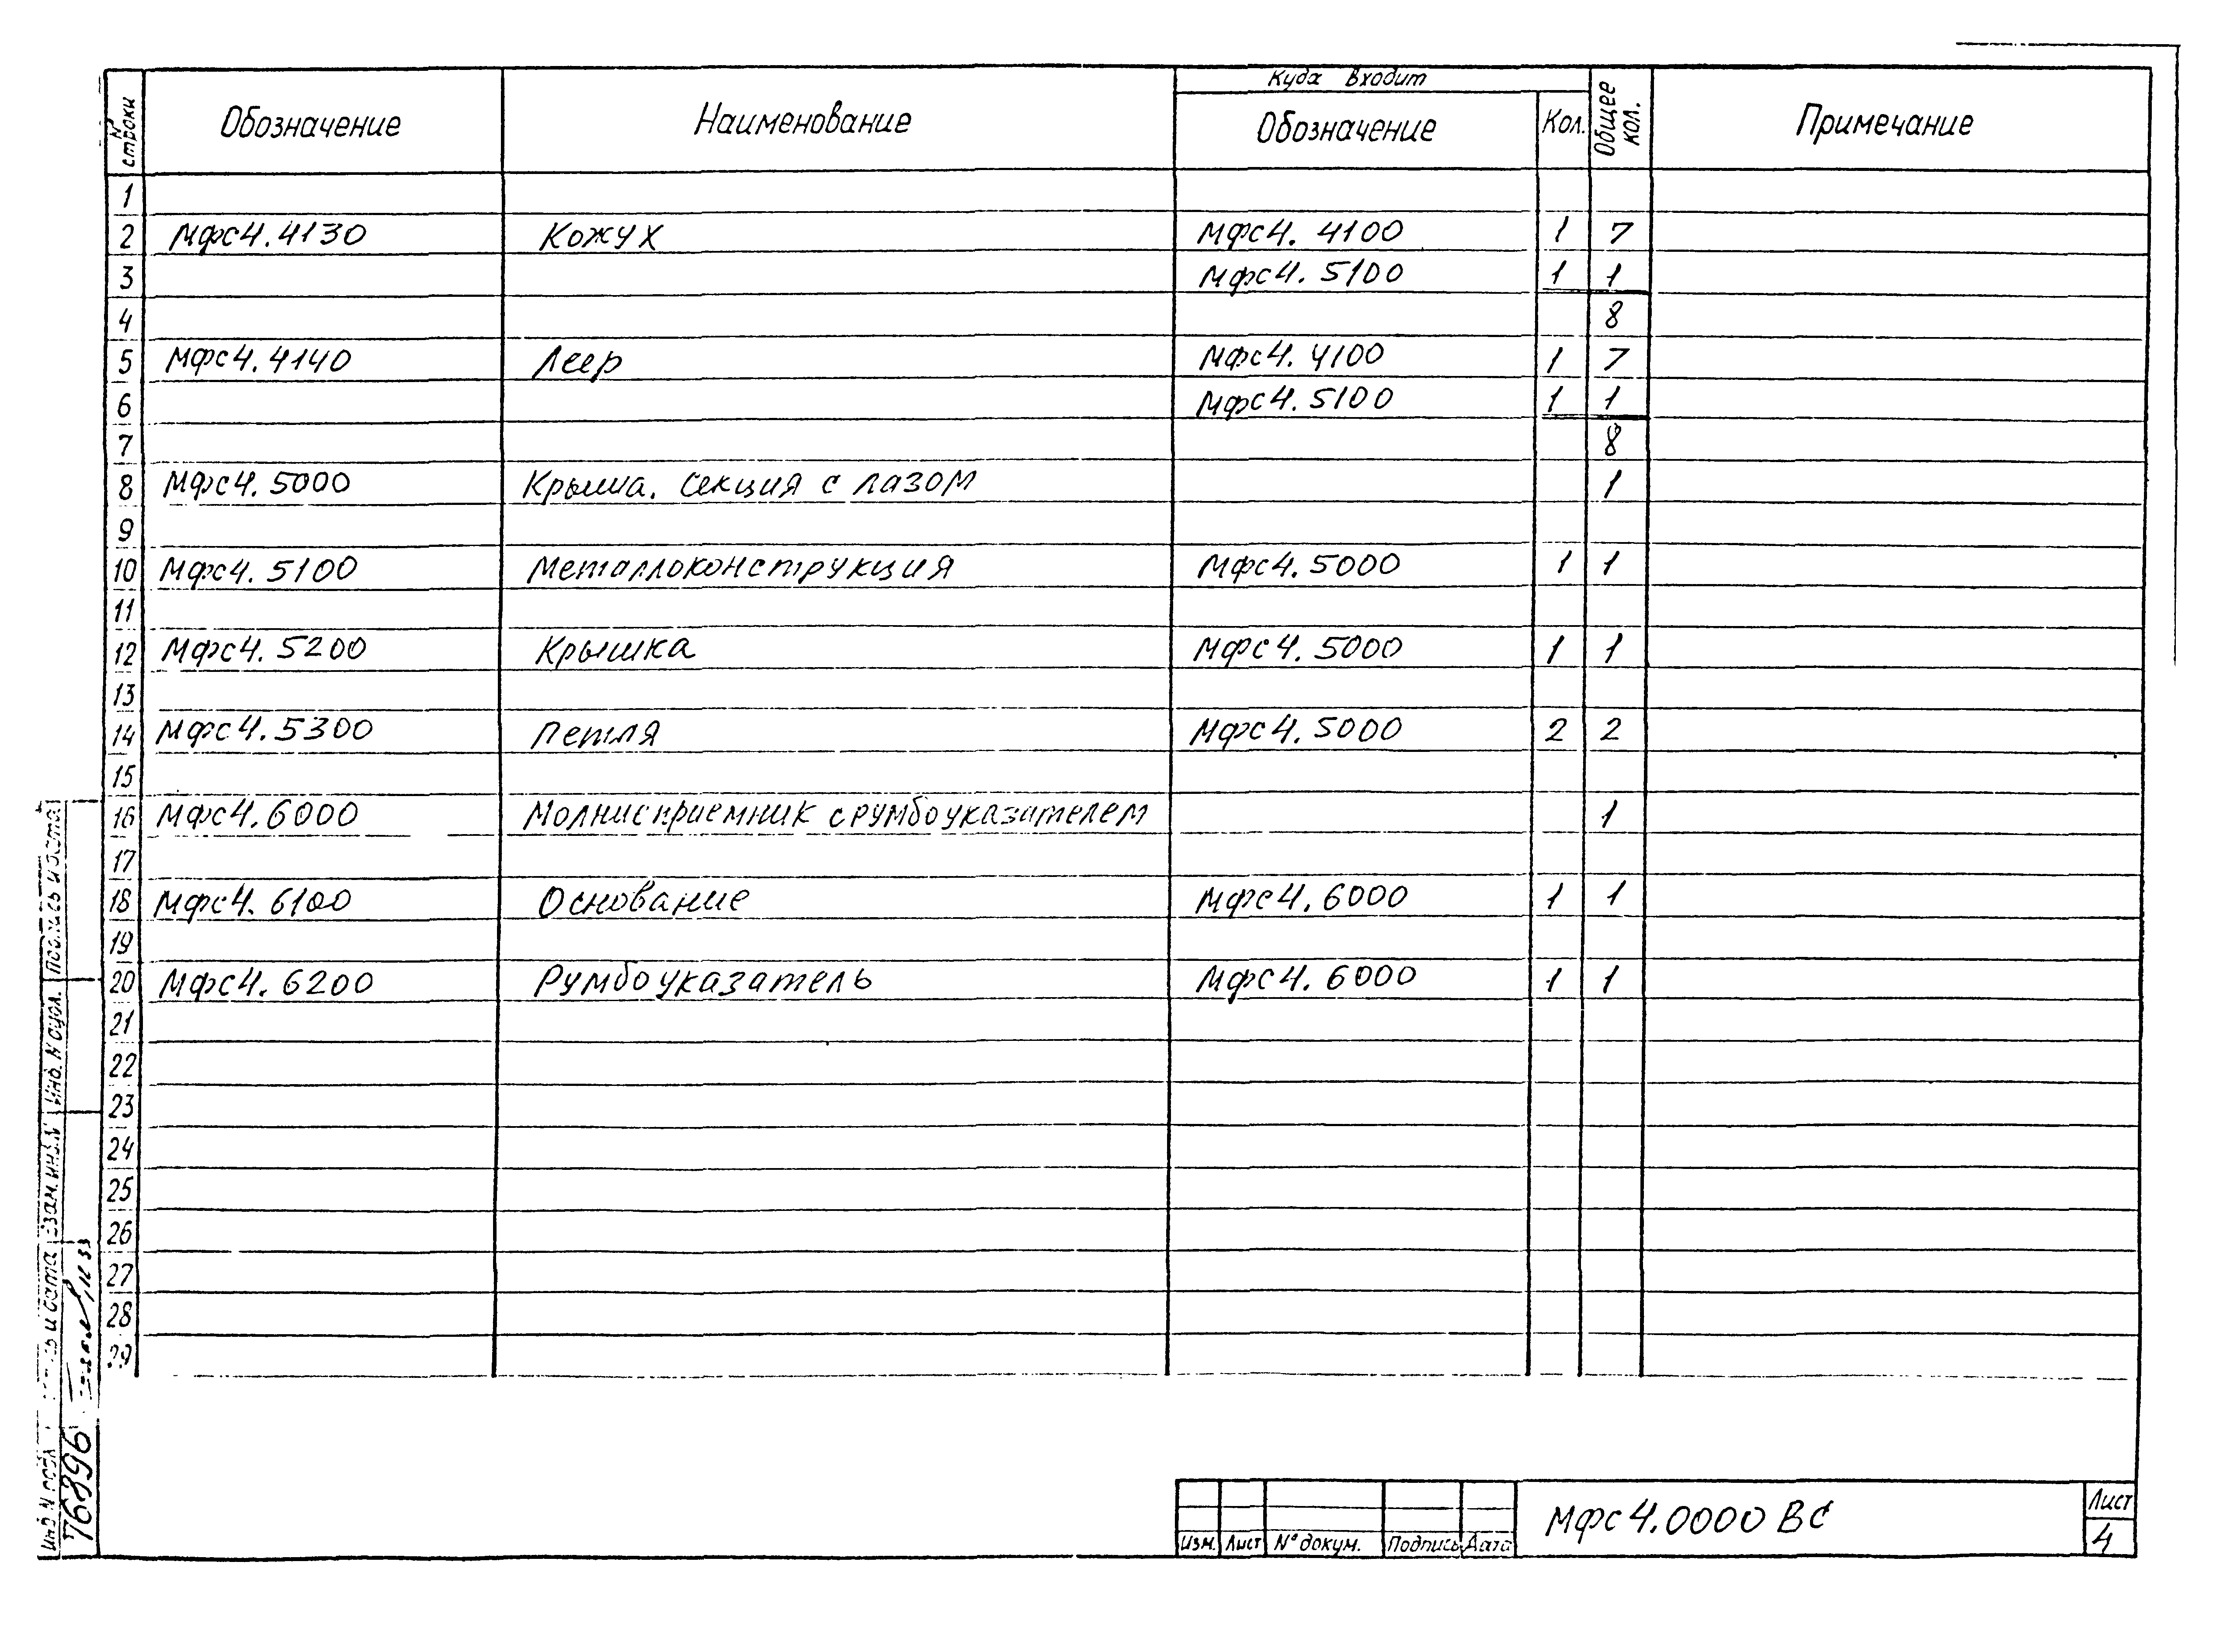 № строки Обозначение Наименование Куда входит Общее кол. Примечание
Обозначение Кол.
1
2 Мфс4.4130 Кожух Мфс4. 4100 1 7
3 Мфс4. 5100 1 1
4 8
5 Мфс4.4140 Леер Мфс4. 4100 1 7
6 Мфс4.5100 1 1
7 8
8 Мфс4. 5000 Крыша. Секция с лазом 1
9
10 Мфс4. 5100 Металлоконструкция Мфс4.5000 1 1
11
12 Мфс4. 5200 Крышка Мфс4. 5000 1 1
13
14 Мфс4.5300 Петля Мфс4. 5000 2 2
15
16 Мфс4.6000 Молниеприемник с румбоуказателем 1
17
18 Мфс4. 6100 Основание Мфс4. 6000 1 1
19
20 Мфс4. 6200 Румбоуказатель Мфс4. 6000 1 1
21
22
23
24
25
26
27
28
29
Подпись и дата
Инв. № дубл.
Взам. инв. №
Подпись и дата
Инв. № подл.
76896
Изм. Лист № докум. Подпись Дата
Мфс4.0000 ВС
Лист
4